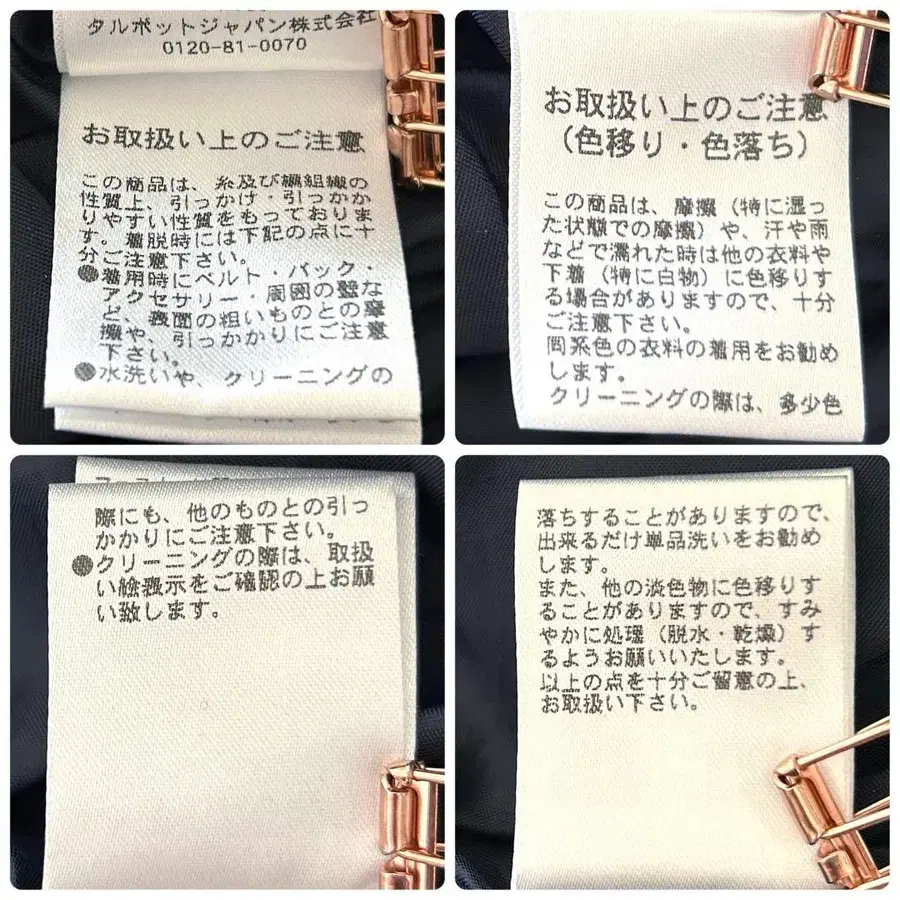 タルボットジャパン株式会社
0120-81-0070
お取扱い上のご注意
この商品は、糸及び編組織の
性質上、引っかけ・引っかか
りやすい性質をもっておりま
す。着脱時には下記の点に十
分ご注意下さい。
●着用時にベルト・バック・
アクセサリー・周囲の壁な
ど、表面の粗いものとの摩
擦や、引っかかりにご注意
下さい。
●水洗いや、クリーニングの
お取扱い上のご注意
(色移り・色落ち)
この商品は、摩擦(特に湿っ
た状態での摩擦)や、汗や雨
などで濡れた時は他の衣料や
下着(特に白物)に色移りす
る場合がありますので、十分
ご注意下さい。
同系色の衣料の着用をお勧め
します。
クリーニングの際は、多少色
際にも、他のものとの引っ
かかりにご注意下さい。
●クリーニングの際は、取扱
い絵表示をご確認の上お願
い致します。
落ちすることがありますので、
出来るだけ単品洗いをお勧め
します。
また、他の淡色物に色移りす
ることがありますので、すみ
やかに処理(脱水・乾燥)す
るようお願いいたします。
以上の点を十分ご留意の上、
お取扱い下さい。